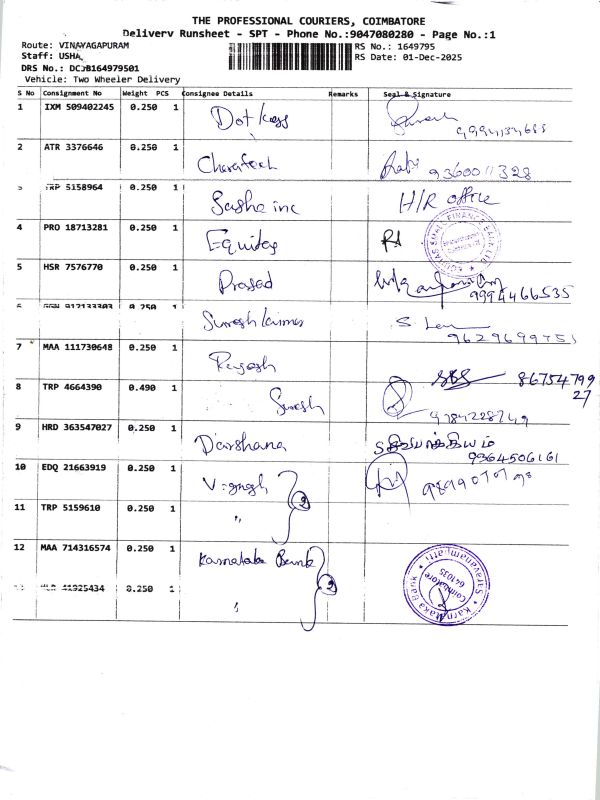 THE PROFESSIONAL COURIERS, COIMBATORE
Delivery Runsheet - SPT - Phone No.:9047080280 - Page No.:1
Route: VINAYAGAPURAM
RS No.: 1649795
Staff: USHA
RS Date: 01-Dec-2025
DRS No.: DCJB164979501
Vehicle: Two Wheeler Delivery
S No Consignment No Weight PCS Consignee Details Remarks Seal & Signature
1 IXM 509402245 0.250 1 Dot kays
2 ATR 3376646 0.250 1 9360011328
TRP 5158964 0.250 1 Sasha inc H/R office
4 PRO 18713281 0.250 1 Equitas
5 HSR 7576770 0.250 1 Prasad 9994466535
912133303 0.250 1 Suresh kumar
7 MAA 111730648 0.250 1 Rajesh 86754799
27
8 TRP 4664390 0.490 1 Suresh 9784228749
9 HRD 363547027 0.250 1 Darshana
9364506161
10 EDQ 21663919 0.250 1 Vignesh 2
11 TRP 5159610 0.250 1 "
12 MAA 714316574 0.250 1 Karnataka Bank 2
41925434 0.250 1
Karnataka Bank
Coimbatore
641035